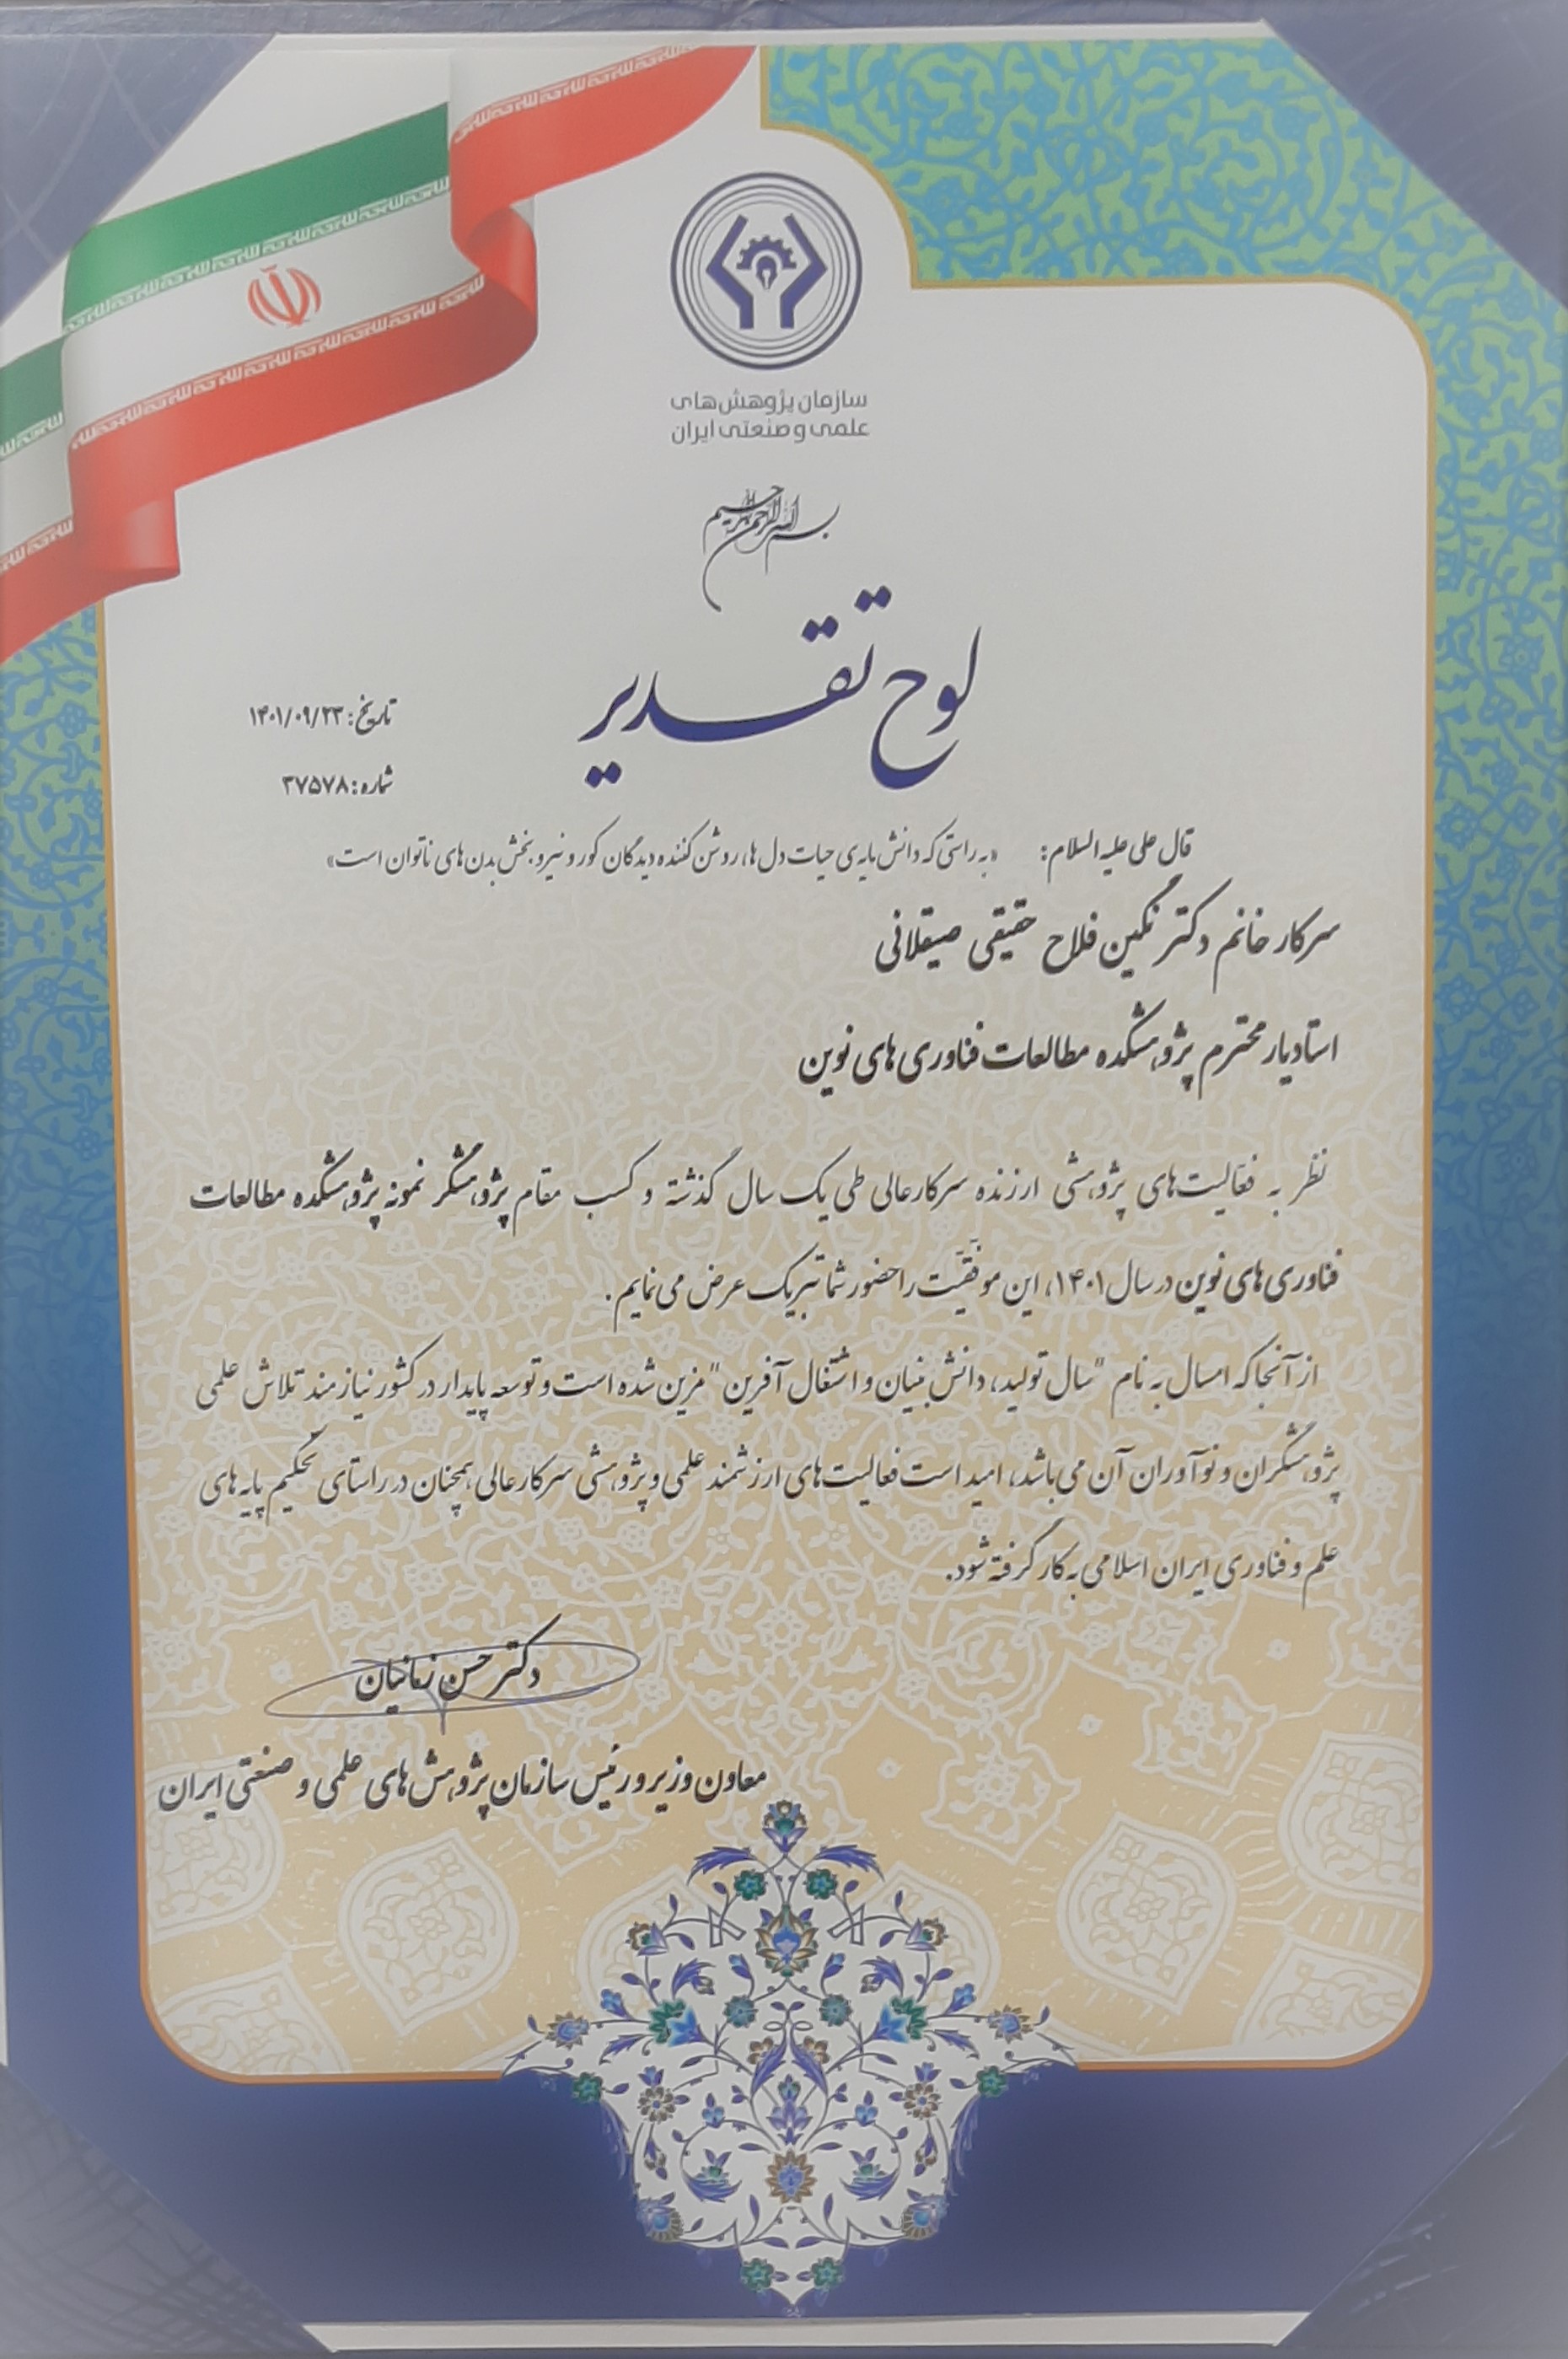 سازمان پژوهش‌های
علمی و صنعتی ایران
بسم الله الرحمن الرحیم
لوح تقدیر
تاریخ: ۱۴۰۱/۰۹/۲۳
شماره: ۳۷۵۷۸
قال علی علیه السلام: «به راستی که دانش مایه‌ی حیات دل ها، روشن کننده دیدگان کور و نیروبخش بدن های ناتوان است»
سرکار خانم دکتر نگین فلاح حقیقی صیقلانی
استادیار محترم پژوهشکده مطالعات فناوری های نوین
نظر به فعالیت‌های پژوهشی ارزنده سرکارعالی طی یک سال گذشته و کسب مقام پژوهشگر نمونه پژوهشکده مطالعات
فناوری های نوین در سال ۱۴۰۱، این موفقّیت را حضور شما تبریک عرض می نمایم.
از آنجا که امسال به نام "سال تولید، دانش بنیان و اشتغال آفرین" مزین شده است و توسعه پایدار در کشور نیازمند تلاش علمی
پژوهشگران و نوآوران آن می باشد، امید است فعالیت های ارزشمند علمی و پژوهشی سرکارعالی همچنان در راستای تحکیم پایه های
علم و فناوری ایران اسلامی به کار گرفته شود.
دکتر حسن زمانیان
معاون وزیر و رئیس سازمان پژوهش های علمی و صنعتی ایران